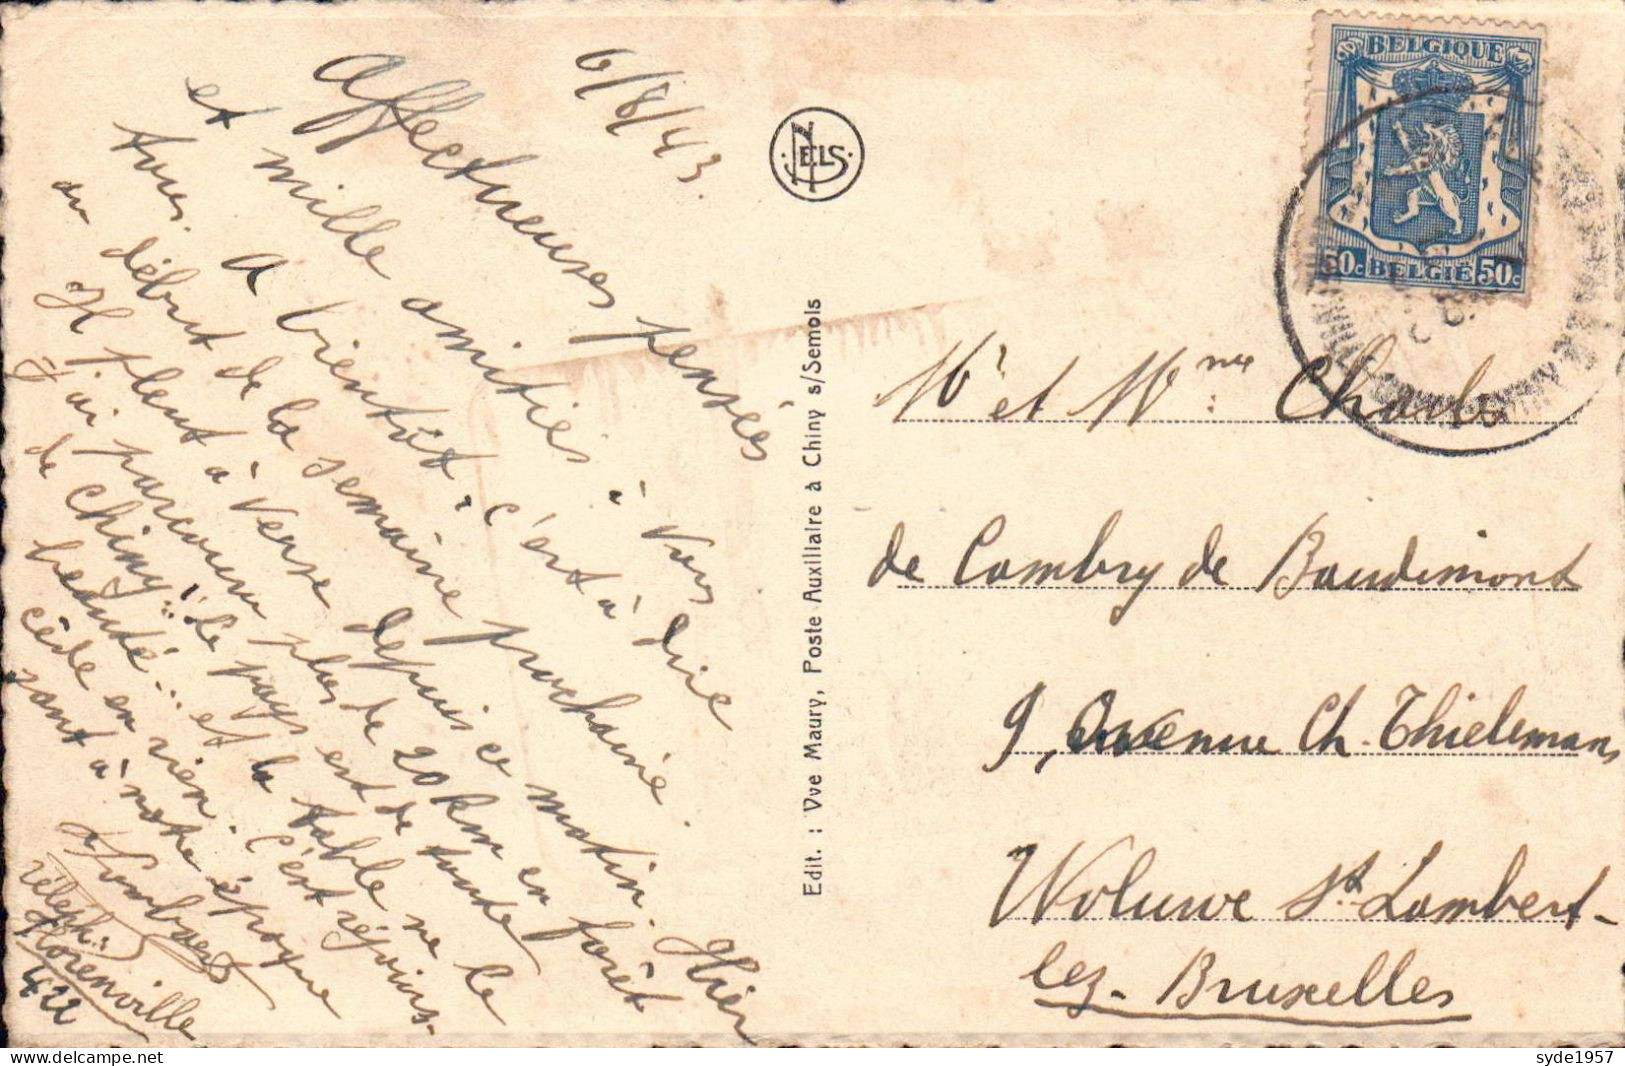 6/8/43.
Affectueuses pensées
et mille amitiés à vous
tous. A bientôt, c'est à dire
au début de la semaine prochaine.
Il pleut à verse depuis ce matin. Hier
j'ai parcouru plus de 20 km en forêt
de Chiny... Le pays est de toute
beauté... et la table ne le
cède en rien. C'est réjouis-
sant à notre époque
téléph:
Florenville
422
NELS
Edit. : Vve Maury, Poste Auxiliaire à Chiny s/Semois
BELGIQUE
50c BELGIË 50c
CHINY
Mr et Mme: Charles
de Cambry de Baudimont
9, Avenue Ch. Thielemans
Woluwe St. Lambert-
lez-Bruxelles
syde1957